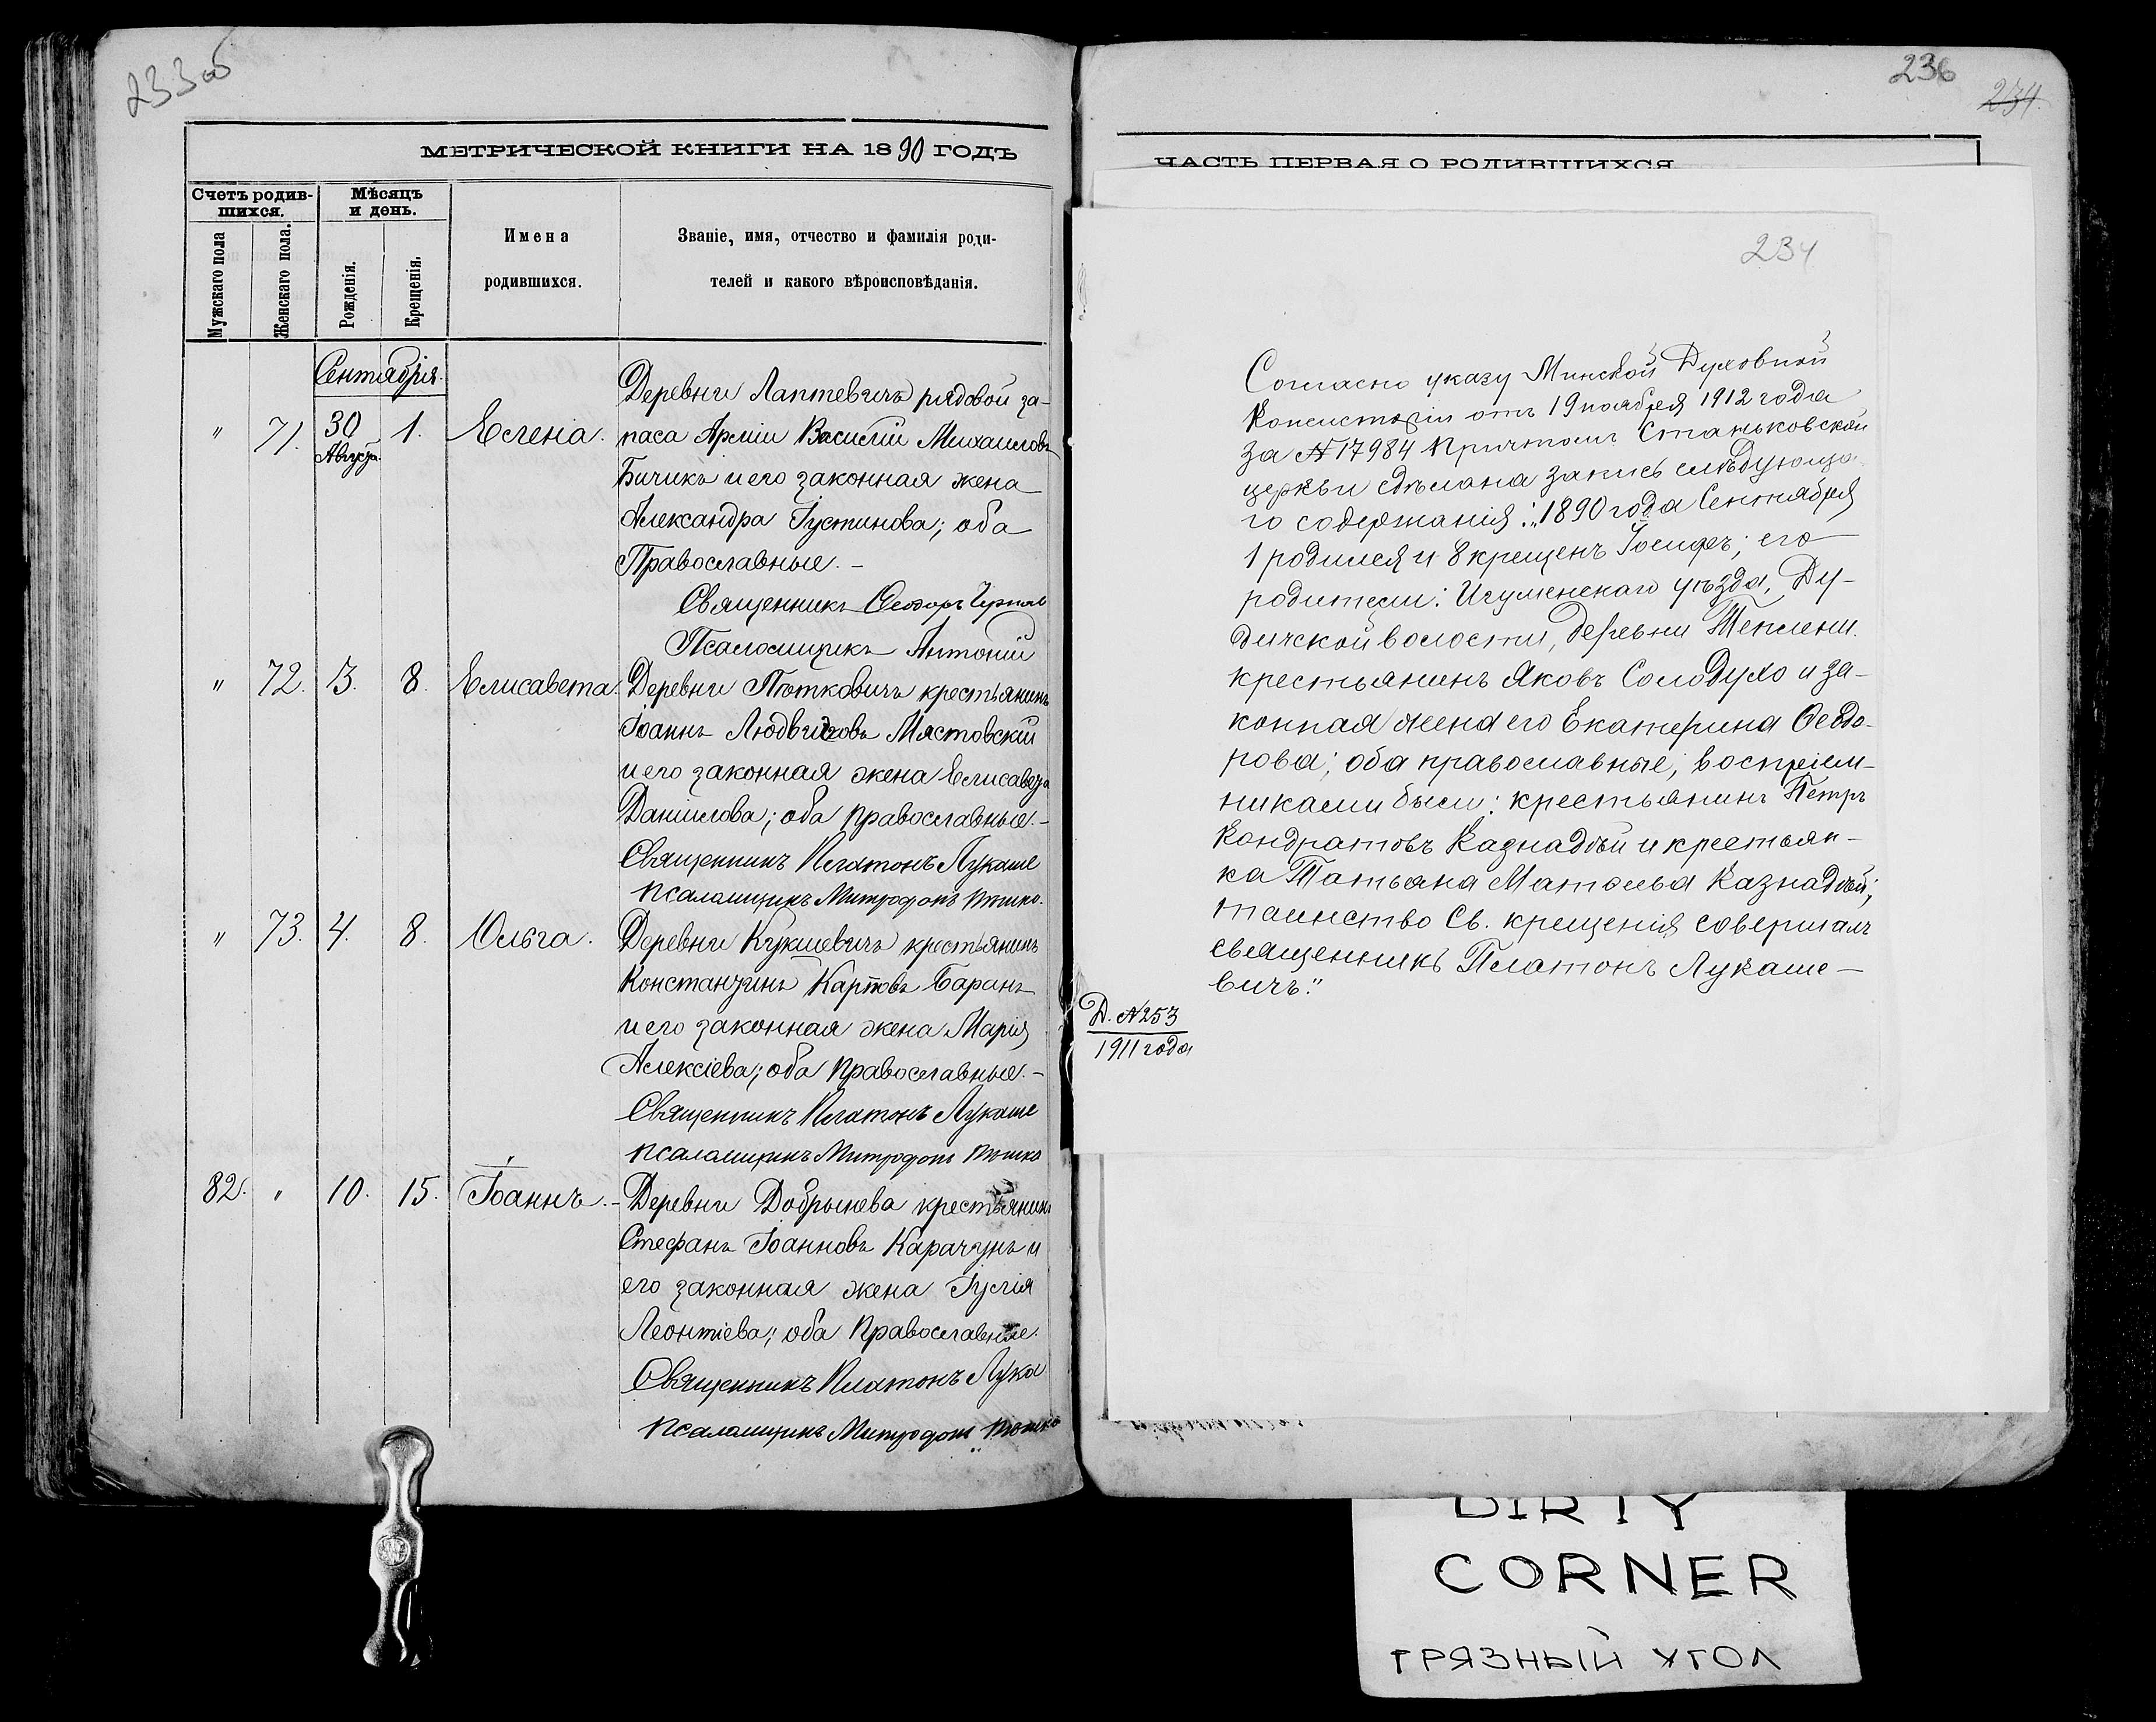 233 об
МЕТРИЧЕСКОЙ КНИГИ НА 1890 ГОДЪ
Счетъ родив-
шихся.
Мѣсяцъ
и день.
Мужскаго пола
Женскаго пола.
Рожденія.
Крещенія.
Имена
родившихся.
Званіе, имя, отчество и фамилія роди-
телей и какого вѣроисповѣданія.
Сентября.
" 71. 30 Августа. 1. Елена.
Деревни Лаптевичъ рядовой за-
паса Арміи Василій Михаиловъ
Бичикъ и его законная жена
Александра Іустинова; оба
Православные. -
Священникъ Ѳеодоръ
Псаломщикъ Антоній
" 72. 3. 8. Елисавета.
Деревни Пютковичъ крестьянинъ
Іоаннъ Людвиговъ Мястовскій
и его законная жена Елисавета
Даніилова; оба Православные. -
Священникъ Платонъ Лукаше
Псаломщикъ Митрофанъ
" 73. 4. 8. Ольга.
Деревни Кукшевичъ крестьянинъ
Константинъ Карповъ Баранъ
и его законная жена Марія
Алексіева; оба Православные. -
Священникъ Платонъ Лукаше
Псаломщикъ Митрофанъ
82. " 10. 15. Іоаннъ. -
Деревни Добрынева крестьянинъ
Стефанъ Іоанновъ Карачунъ и
его законная жена Іулія
Леонтіева; оба Православные.
Священникъ Платонъ Лука
Псаломщикъ Митрофанъ
236
234
ЧАСТЬ ПЕРВАЯ О РОДИВШИХСЯ
234
Согласно указу Минской Духовной
Консисторіи отъ 19 ноября 1912 года
за № 17984 Причтомъ Станьковской
церкви сдѣлана запись слѣдующа-
го содержанія: „1890 года Сентября
1 родился и 8 крещенъ Іосифъ; его
родители: Игуменскаго уѣзда, Ду-
дичской волости, деревни Теплени.
крестьянинъ Яковъ Солодухо и за-
конная жена его Екатерина Ѳеодо-
рова; оба православные; воспріем-
никами были: крестьянинъ Петръ
Кондратовъ Казнадѣй и крестьян-
ка Татьяна Матѳіева Казнадѣй;
таинство Св. крещенія совершалъ
священникъ Платонъ Лукаше-
вичъ."
Д. № 253
1911 года
DIRTY
CORNER
ГРЯЗНЫЙ УГОЛ